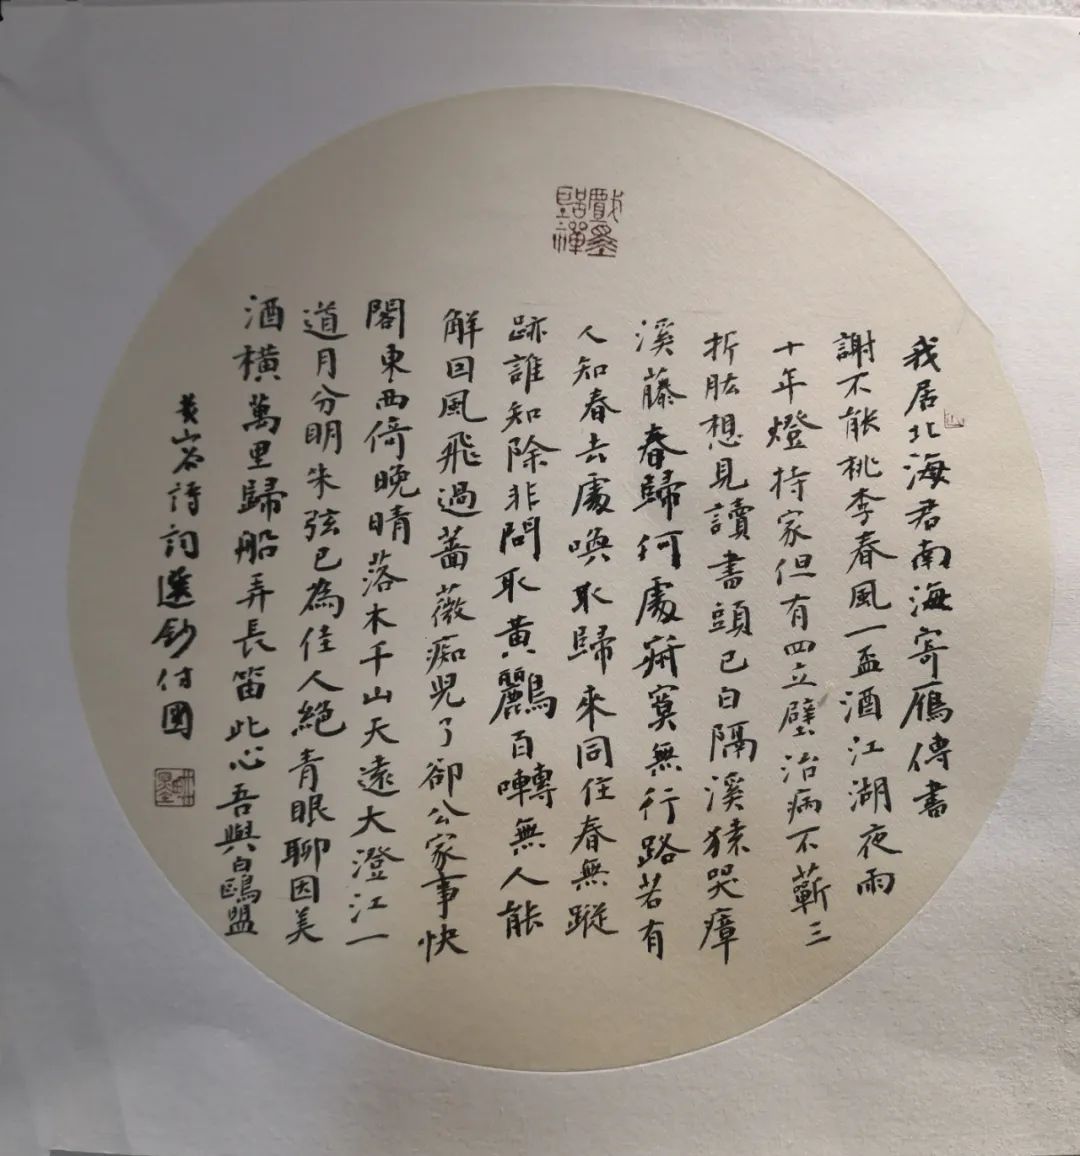 我居北海君南海寄鴈傳書
謝不能桃李春風一盃酒江湖夜雨
十年燈持家但有四立壁治病不蘄三
折肱想見讀書頭已白隔溪猿哭瘴
溪藤春歸何處寂寞無行路若有
人知春去處喚取歸來同住春無蹤
跡誰知除非問取黃鸝百囀無人能
解回風飛過薔薇痴兒了卻公家事快
閣東西倚晚晴落木千山天遠大澄江一
道月分明朱弦已為佳人絕青眼聊因美
酒橫萬里歸船弄長笛此心吾與白鷗盟
黃山谷詩詞選鈔付國